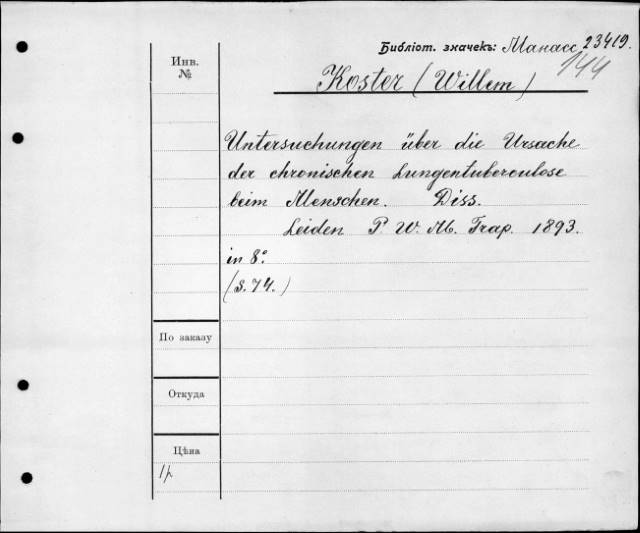 Библіот. значекъ: Манасс 23419.
144
Инв.
№
Koster (Willem)
Untersuchungen über die Ursache
der chronischen Lungentuberculose
beim Menschen. Diss.
Leiden P. W. M. Trap. 1893.
in 8°.
(S. 74.)
По заказу
Откуда
Цѣна
1р